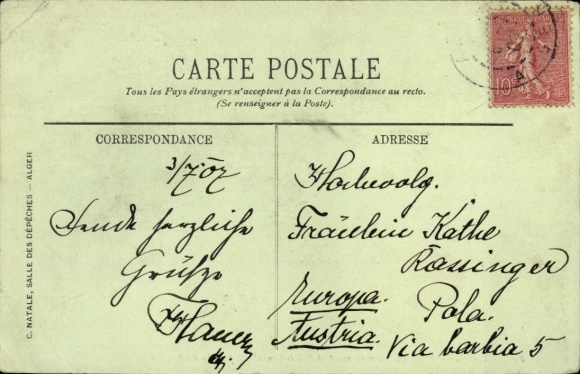 CARTE POSTALE
Tous les Pays étrangers n'acceptent pas la Correspondance au recto.
(Se renseigner à la Poste).
CORRESPONDANCE
3/7 07
Sende herzliche
Grüsze
ADRESSE
Hochwolg.
Fräulein Käthe
Rossinger
Pola.
Via barbia 5
Europa.
Austria.
C. NATALE, SALLE DES DÉPÊCHES — ALGER
10c